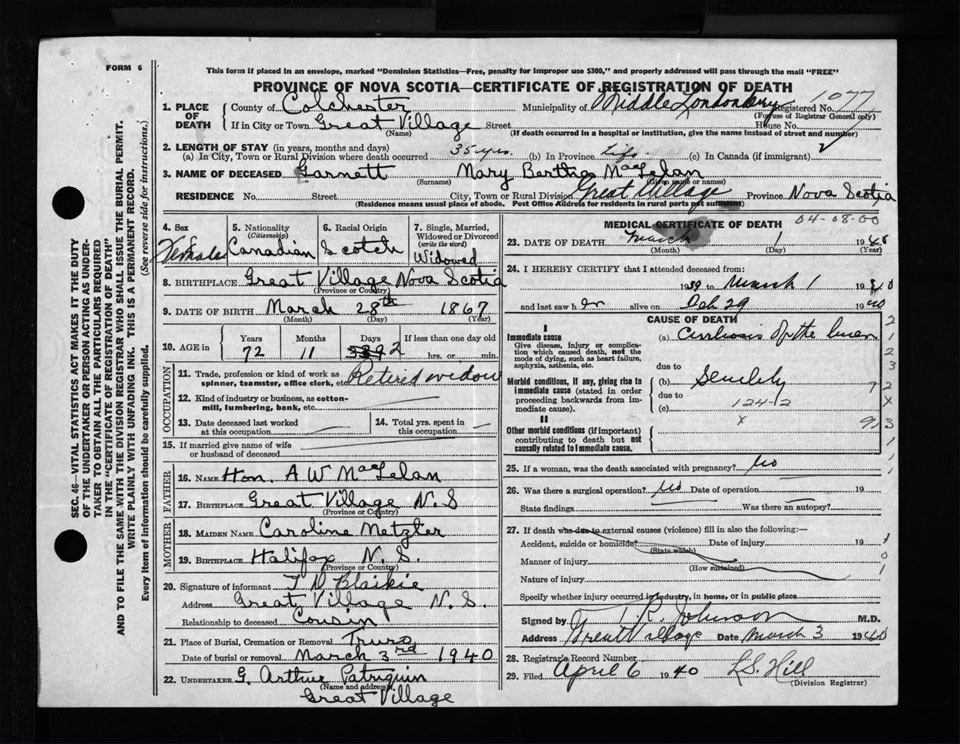 FORM 6
This form if placed in an envelope, marked "Dominion Statistics—Free, penalty for improper use $300," and properly addressed will pass through the mail "FREE"
PROVINCE OF NOVA SCOTIA—CERTIFICATE OF REGISTRATION OF DEATH
1. PLACE OF DEATH County of Colchester Municipality of Middle Londonderry Registered No. 1077
(For use of Registrar General only)
If in City or Town Great Village Street House No.
(Name) (If death occurred in a hospital or institution, give the name instead of street and number)
2. LENGTH OF STAY (in years, months and days)
(a) In City, Town or Rural Division where death occurred 35 yrs. (b) In Province Life (c) In Canada (if immigrant)
3. NAME OF DECEASED Garnett Mary Bertha MacLelan
(Surname) (Given name or names)
RESIDENCE No. Street City, Town or Rural Division Great Village Province Nova Scotia
(Residence means usual place of abode. Post Office Address for residents in rural parts not sufficient)
4. Sex Female
5. Nationality (Citizenship) Canadian
6. Racial Origin Scotch
7. Single, Married, Widowed or Divorced (write the word) Widowed
8. BIRTHPLACE Great Village Nova Scotia
(Province or Country)
9. DATE OF BIRTH March 28th 1867
(Month) (Day) (Year)
10. AGE in Years Months Days If less than one day old
72 11 2 hrs. or min.
OCCUPATION
11. Trade, profession or kind of work as spinner, teamster, office clerk, etc. Retired widow
12. Kind of industry or business, as cotton-mill, lumbering, bank, etc.
13. Date deceased last worked at this occupation
14. Total yrs. spent in this occupation
15. If married give name of wife or husband of deceased
FATHER
16. NAME Hon. A W MacLelan
17. BIRTHPLACE Great Village N.S
(Province or Country)
MOTHER
18. MAIDEN NAME Caroline Metzler
19. BIRTHPLACE Halifax N.S.
(Province or Country)
20. Signature of informant T D Blaikie
Address Great Village N.S.
Relationship to deceased Cousin
21. Place of Burial, Cremation or Removal Truro
Date of burial or removal March 3rd 1940
22. UNDERTAKER G. Arthur Patriquin
(Name and address)
Great Village
04-08-00
MEDICAL CERTIFICATE OF DEATH
23. DATE OF DEATH March 1 1940
(Month) (Day) (Year)
24. I HEREBY CERTIFY that I attended deceased from:
1939 to March 1 1940
and last saw her alive on Feb 29 1940
CAUSE OF DEATH
I
Immediate cause
Give disease, injury or complication which caused death, not the mode of dying, such as heart failure, asphyxia, asthenia, etc.
(a) Cirrhosis of the liver
due to
Morbid conditions, if any, giving rise to immediate cause (stated in order proceeding backwards from immediate cause).
(b) Senility
due to
(c) 124-2
II
Other morbid conditions (if important) contributing to death but not causally related to immediate cause.
x
25. If a woman, was the death associated with pregnancy? No
26. Was there a surgical operation? No Date of operation 19
State findings Was there an autopsy?
27. If death was due to external causes (violence) fill in also the following:—
Accident, suicide or homicide? Date of injury 19
(State which)
Manner of injury
(How sustained)
Nature of injury
Specify whether injury occurred in industry, in home, or in public place
Signed by T R Johnson M.D.
Address Great Village Date March 3 1940
28. Registrar's Record Number
29. Filed April 6 1940 L S Hill
(Division Registrar)
SEC. 46—VITAL STATISTICS ACT MAKES IT THE DUTY
OF THE UNDERTAKER OR PERSON ACTING AS UNDERTAKER TO OBTAIN ALL THE PARTICULARS REQUIRED
IN THE "CERTIFICATE OF REGISTRATION OF DEATH"
AND TO FILE THE SAME WITH THE DIVISION REGISTRAR WHO SHALL ISSUE THE BURIAL PERMIT.
WRITE PLAINLY WITH UNFADING INK. THIS IS A PERMANENT RECORD.
Every item of information should be carefully supplied. (See reverse side for instructions.)